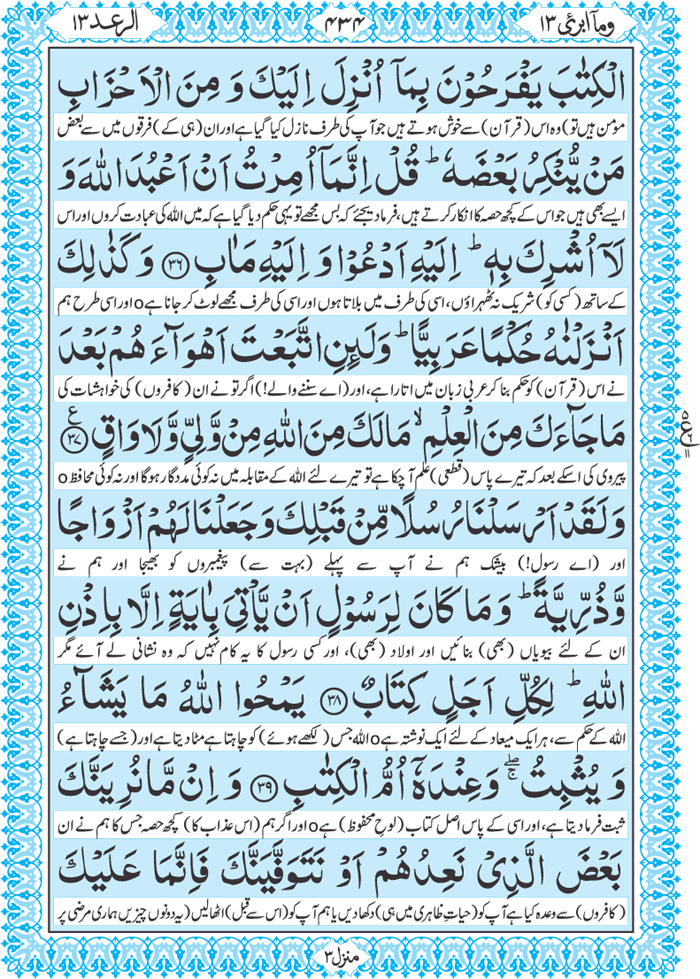 وما ابرئ ١٣
٤٣٤
الرعد ١٣
الْكِتٰبَ يَفْرَحُوْنَ بِمَاۤ اُنْزِلَ اِلَيْكَ وَ مِنَ الْاَحْزَابِ
مومن ہیں تو) وہ اس (قرآن) سے خوش ہوتے ہیں جو آپ کی طرف نازل کیا گیا ہے اور ان (ہی کے) فرقوں میں سے بعض
مَنْ يُّنْكِرُ بَعْضَهٗ ؕ قُلْ اِنَّمَاۤ اُمِرْتُ اَنْ اَعْبُدَ اللّٰهَ وَ
ایسے بھی ہیں جو اس کے کچھ حصہ کا انکار کرتے ہیں، فرما دیجئے کہ بس مجھے تو یہی حکم دیا گیا ہے کہ میں اللہ کی عبادت کروں اور اس
لَاۤ اُشْرِكَ بِهٖ ؕ اِلَيْهِ اَدْعُوْا وَ اِلَيْهِ مَاٰبِ ﴿٣٦﴾ وَ كَذٰلِكَ
کے ساتھ (کسی کو) شریک نہ ٹھہراؤں، اسی کی طرف میں بلاتا ہوں اور اسی کی طرف مجھے لوٹ کر جانا ہے o اور اسی طرح ہم
اَنْزَلْنٰهُ حُكْمًا عَرَبِيًّا ؕ وَلَىِٕنِ اتَّبَعْتَ اَهْوَآءَهُمْ بَعْدَ
نے اس (قرآن) کو حکم بنا کر عربی زبان میں اتارا ہے، اور (اے سننے والے!) اگر تو نے ان (کافروں) کی خواہشات کی
مَا جَآءَكَ مِنَ الْعِلْمِ ۙ مَا لَكَ مِنَ اللّٰهِ مِنْ وَّلِيٍّ وَّلَا وَاقٍ ﴿٣٧﴾ ع
پیروی کی اسکے بعد کہ تیرے پاس (قطعی) علم آ چکا ہے تو تیرے لئے اللہ کے مقابلہ میں نہ کوئی مددگار ہوگا اور نہ کوئی محافظ o
وَلَقَدْ اَرْسَلْنَا رُسُلًا مِّنْ قَبْلِكَ وَ جَعَلْنَا لَهُمْ اَزْوَاجًا
اور (اے رسول!) بیشک ہم نے آپ سے پہلے (بہت سے) پیغمبروں کو بھیجا اور ہم نے
وَّ ذُرِّيَّةً ؕ وَ مَا كَانَ لِرَسُوْلٍ اَنْ يَّاْتِيَ بِاٰيَةٍ اِلَّا بِاِذْنِ
ان کے لئے بیویاں (بھی) بنائیں اور اولاد (بھی)، اور کسی رسول کا یہ کام نہیں کہ وہ نشانی لے آئے مگر
اللّٰهِ ؕ لِكُلِّ اَجَلٍ كِتَابٌ ﴿٣٨﴾ يَمْحُوا اللّٰهُ مَا يَشَآءُ
اللہ کے حکم سے، ہر ایک میعاد کے لئے ایک نوشتہ ہے o اللہ جس (لکھے ہوئے) کو چاہتا ہے مٹا دیتا ہے اور (جسے چاہتا ہے)
وَ يُثْبِتُ ۖۚ وَعِنْدَهٗۤ اُمُّ الْكِتٰبِ ﴿٣٩﴾ وَ اِنْ مَّا نُرِيَنَّكَ
ثبت فرما دیتا ہے، اور اسی کے پاس اصل کتاب (لوحِ محفوظ) ہے o اور اگر ہم (اس عذاب کا) کچھ حصہ جس کا ہم نے ان
بَعْضَ الَّذِيْ نَعِدُهُمْ اَوْ نَتَوَفَّيَنَّكَ فَاِنَّمَا عَلَيْكَ
(کافروں) سے وعدہ کیا ہے آپ کو (حیاتِ ظاہری میں ہی) دکھا دیں یا ہم آپ کو (اس سے قبل) اٹھا لیں (یہ دونوں چیزیں ہماری مرضی پر
منزل ٣